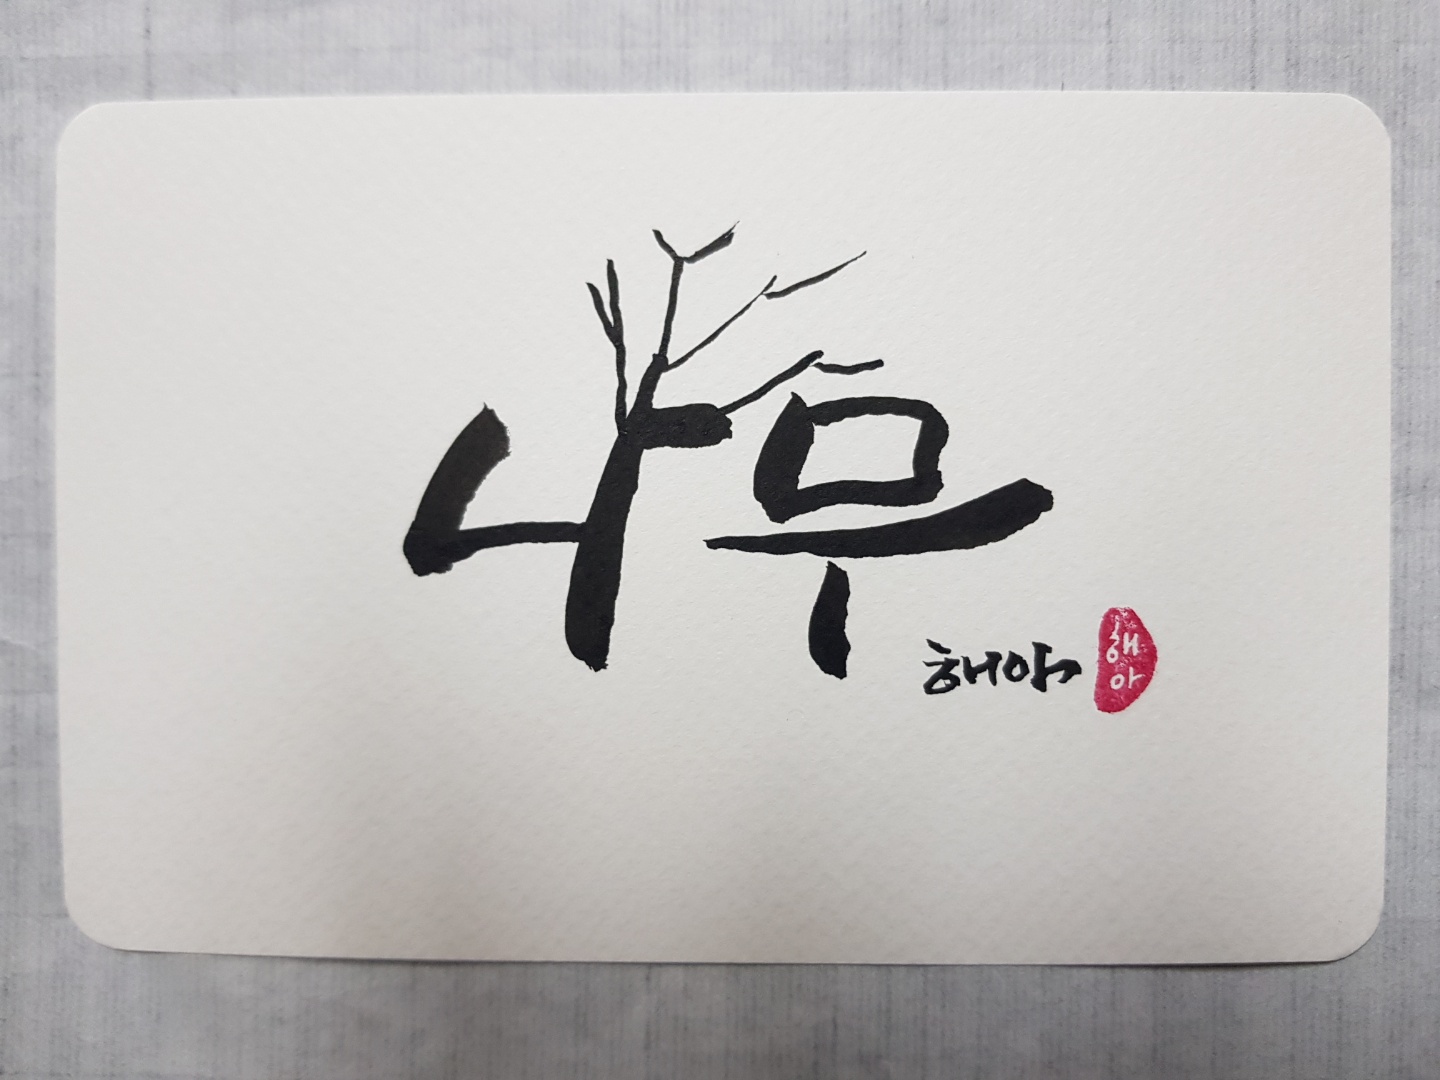 나무
해아
해아